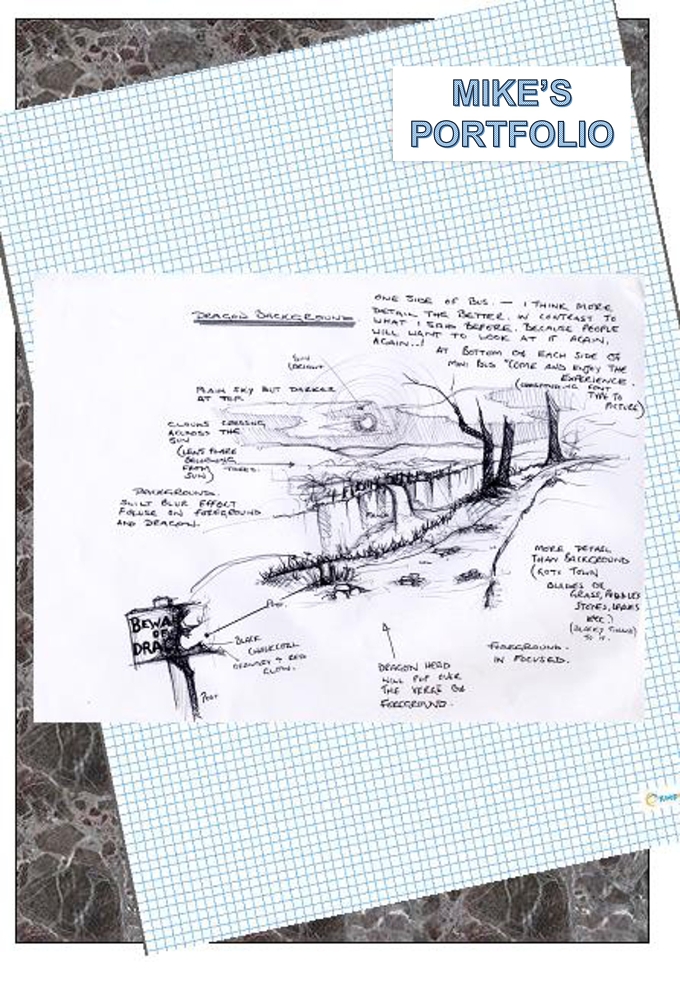 MIKE'S
PORTFOLIO
DRAGON BACKGROUND
ONE SIDE OF BUS. — I THINK MORE
DETAIL THE BETTER. IN CONTRAST TO
WHAT I SAID BEFORE. BECAUSE PEOPLE
WILL WANT TO LOOK AT IT AGAIN,
AGAIN..!
AT BOTTOM OF EACH SIDE OF
MINI BUS "COME AND ENJOY THE
EXPERIENCE.
FONT
TYPE TO
PICTURE)
SUN
PLAIN SKY BUT DARKER
AT TOP.
CLOUDS CROSSING
ACROSS THE
SUN
(LENS FLARE
FROM
SUN)
TREES.
BACKGROUND.
BLUR EFFECT
ON FOREGROUND
AND DRAGON.
MORE DETAIL
THAN BACKGROUND
(GOTO TOWN
BLADES OF
GRASS, PEBBLES
STONES,
ETC.)
TO IT.
BEWA
OF
DRA
POST
BLACK
CHARCOAL
& RED
GLOW.
POST
DRAGON HEAD
WILL POP OVER
THE VERGE OF
FOREGROUND.
FOREGROUND.
IN FOCUSED.